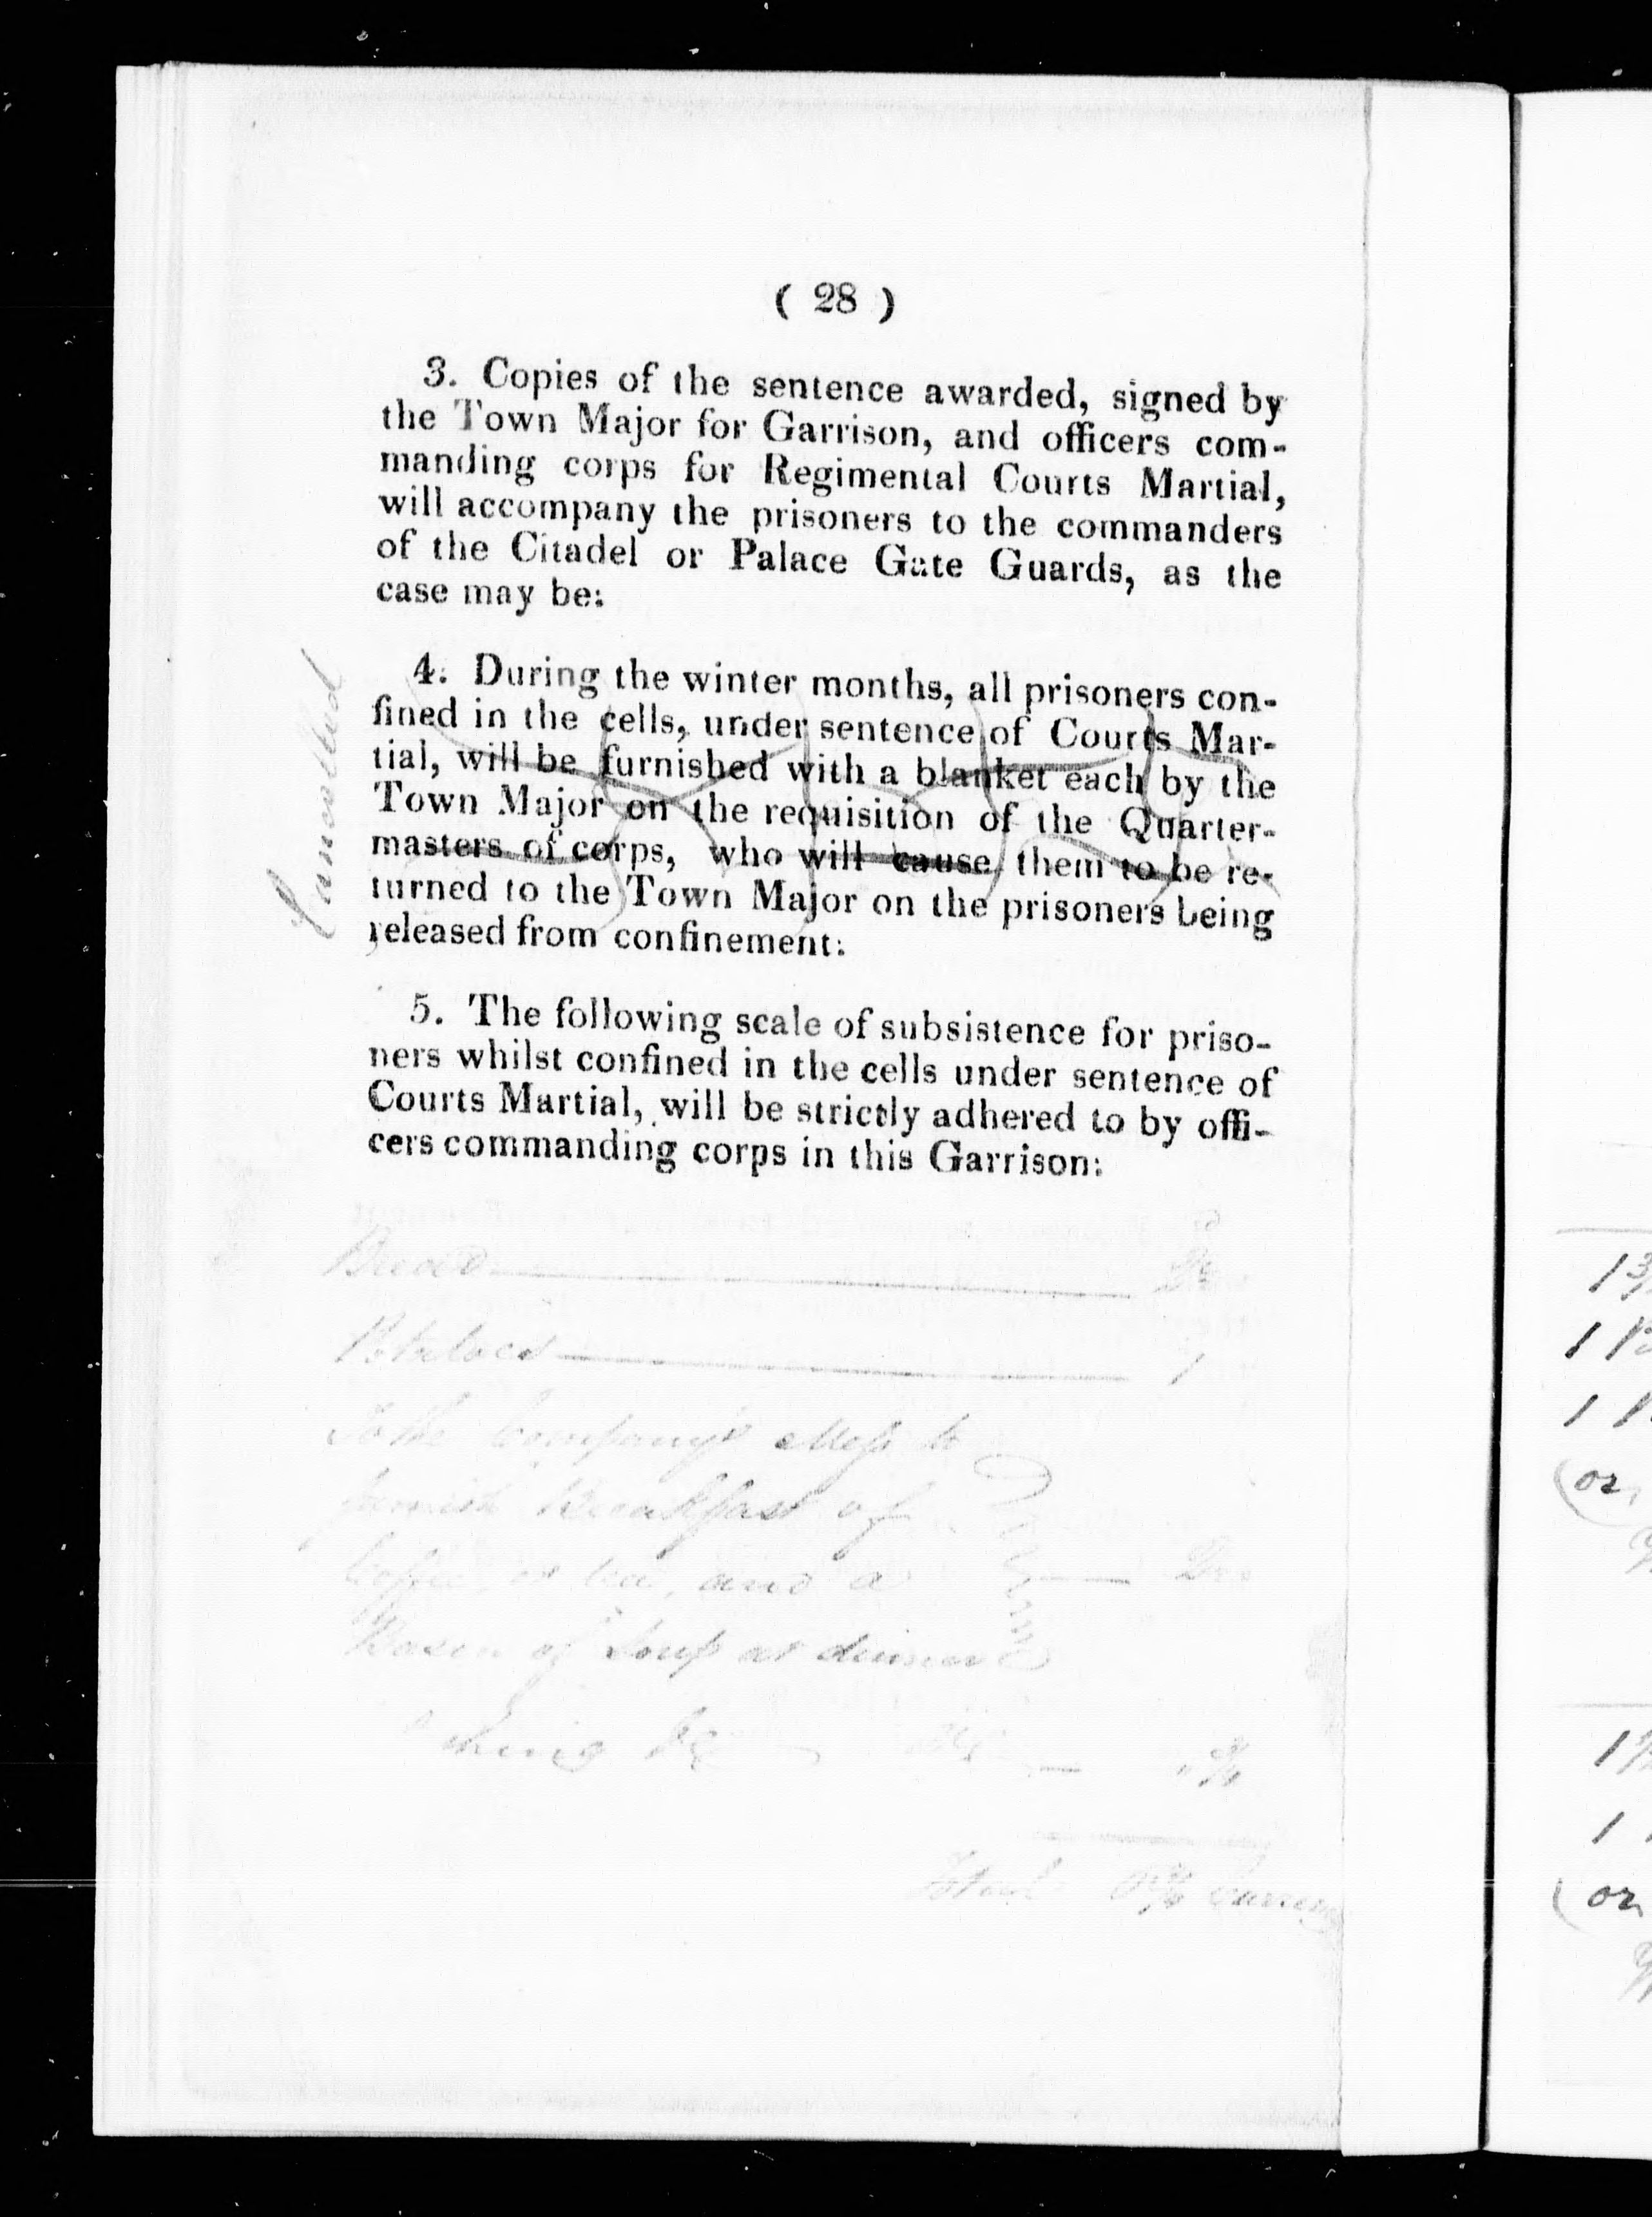 ( 28 )
3. Copies of the sentence awarded, signed by
the Town Major for Garrison, and officers com-
manding corps for Regimental Courts Martial,
will accompany the prisoners to the commanders
of the Citadel or Palace Gate Guards, as the
case may be:
Cancelled
4. During the winter months, all prisoners con-
fined in the cells, under sentence of Courts Mar-
tial, will be furnished with a blanket each by the
Town Major on the requisition of the Quarter-
masters of corps, who will cause them to be re-
turned to the Town Major on the prisoners being
released from confinement:
5. The following scale of subsistence for priso-
ners whilst confined in the cells under sentence of
Courts Martial, will be strictly adhered to by offi-
cers commanding corps in this Garrison:
Bread
Potatoes 1
To the Company's Mess to
furnish Breakfast of
Coffee or tea, and a
Basin of Soup at dinner
Total
1
1
1
(or
1
1
(or